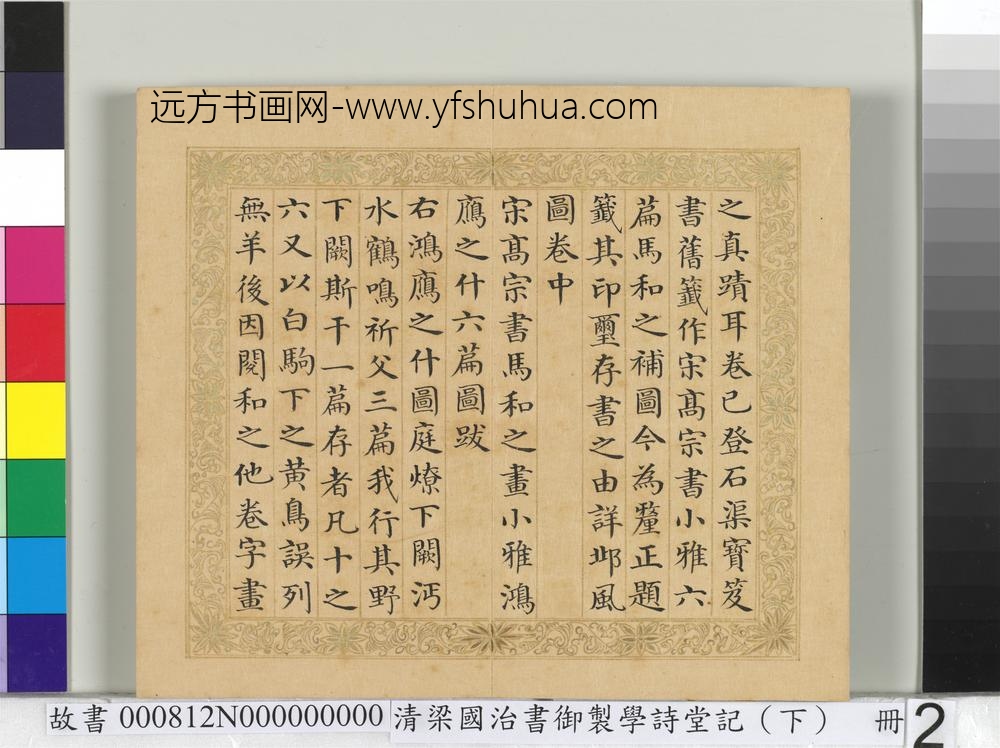 远方书画网-www.yfshuhua.com
之真蹟耳卷已登石渠寶笈
書舊籤作宋髙宗書小雅六
篇馬和之補圖今為釐正題
籤其印璽存書之由詳邶風
圖卷中
宋髙宗書馬和之畫小雅鴻
鴈之什六篇圖跋
右鴻鴈之什圖庭燎下闕沔
水鶴鳴祈父三篇我行其野
下闕斯干一篇存者凡十之
六又以白駒下之黃鳥誤列
無羊後因閱和之他卷字畫
故書 000812N000000000
清梁國治書御製學詩堂記（下） 冊 2